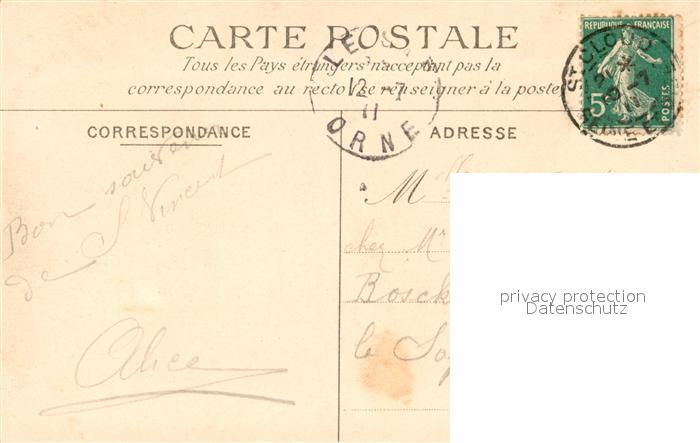 CARTE POSTALE
Tous les Pays étrangers n'acceptent pas la
correspondance au recto, se renseigner à la poste
CORRESPONDANCE
ADRESSE
REPUBLIQUE FRANÇAISE
5c
POSTES
ST CLOUD
LE
12 -7
11
ORNE
Bon souvenir
de St Vincent
Alice
Mlle
chez Mr
le
privacy protection
Datenschutz